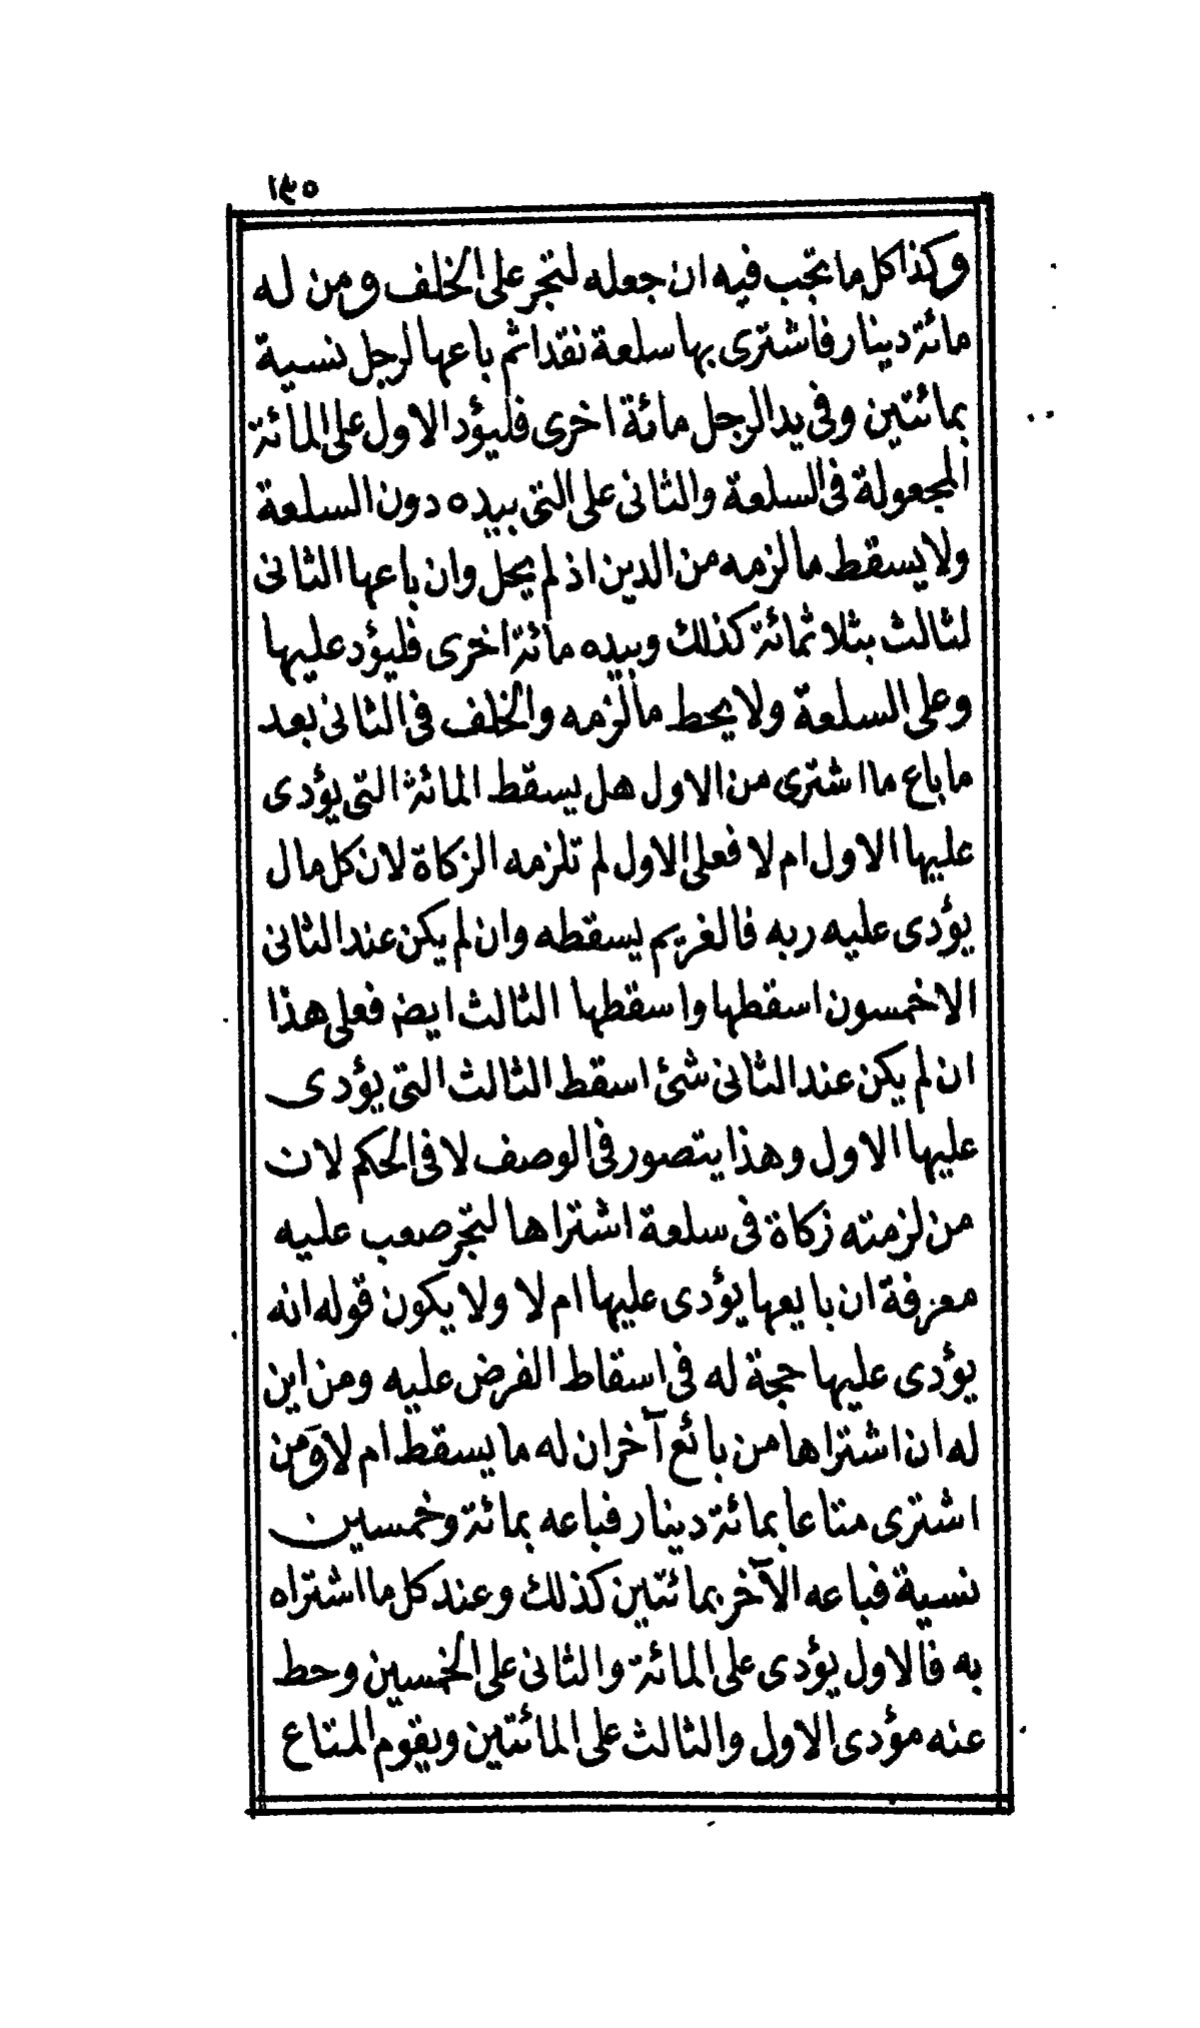 ١٣٥
وكذا كل ما تجب فيه ان جعله لتجر على الخلف ومن له
مائة دينار فاشترى بها سلعة نقدا ثم باعها لرجل نسية
بمائتين وفى يد الرجل مائة اخرى فليؤد الاول على المائة
المجعولة فى السلعة والثانى على التى بيده دون السلعة
ولا يسقط ما لزمه من الدين اذ لم يحل وان باعها الثانى
لثالث بثلاثمائة كذلك وبيده مائة اخرى فليؤد عليها
وعلى السلعة ولا يحط ما لزمه والخلف فى الثانى بعد
ما باع ما اشترى من الاول هل يسقط المائة التى يؤدى
عليها الاول ام لا فعلى الاول لم تلزمه الزكاة لان كل مال
يؤدى عليه ربه فالغريم يسقطه وان لم يكن عند الثانى
الا خمسون اسقطها واسقطها الثالث ايض فعلى هذا
ان لم يكن عند الثانى شئ اسقط الثالث التى يؤدى
عليها الاول وهذا يتصور فى الوصف لا فى الحكم لان
من لزمته زكاة فى سلعة اشتراها لتجر صعب عليه
معرفة ان بايعها يؤدى عليها ام لا ولا يكون قوله انه
يؤدى عليها حجة له فى اسقاط الفرض عليه ومن اين
له ان اشتراها من بائع آخر ان له ما يسقط ام لا وَمن
اشترى متاعا بمائة دينار فباعه بمائة وخمسين
نسية فباعه الآخر بمائتين كذلك وعند كل ما اشتراه
به فالاول يؤدى على المائة والثانى على الخمسين وحط
عنه مؤدى الاول والثالث على المائتين ويقوم المتاع